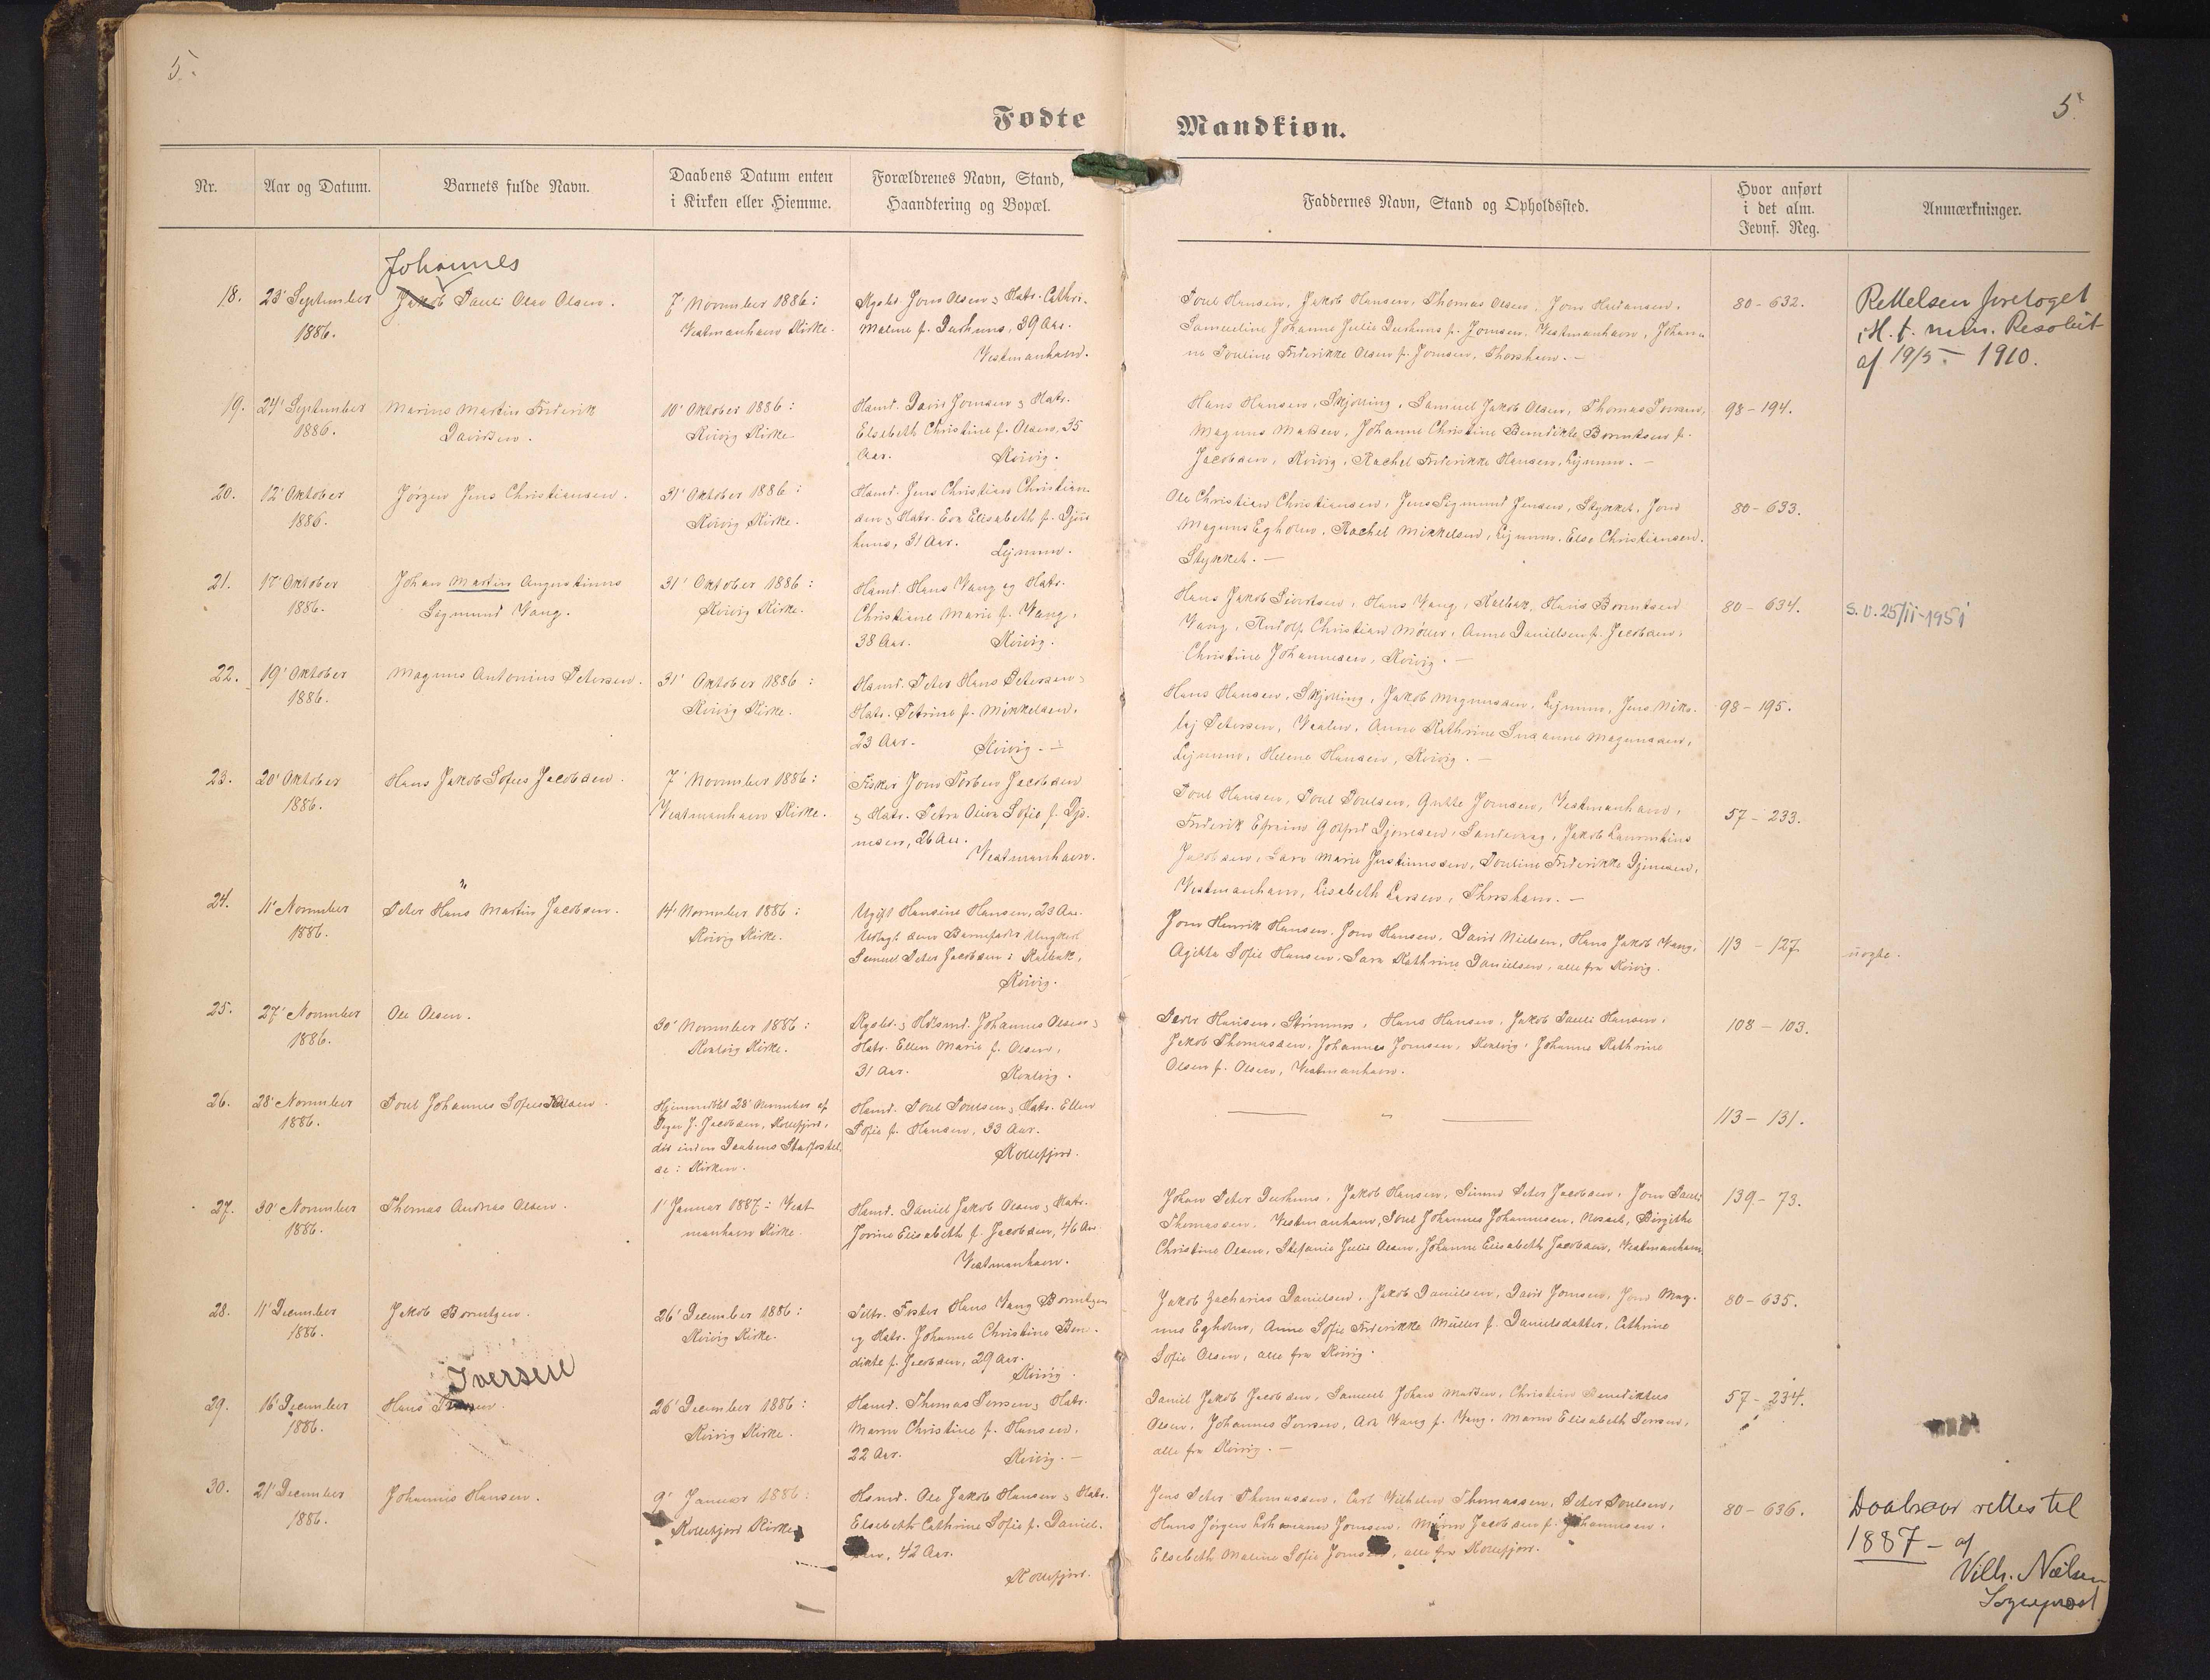 5.
5.
Fødte
Mandkiøn.
Nr.
Aar og Datum.
Barnets fulde Navn.
Daabens Datum enten
i Kirken eller Hiemme.
Forældrenes Navn, Stand,
Haandtering og Bopæl.
Faddernes Navn, Stand og Opholdssted.
Hvor anført
i det alm.
Jevnf. Reg.
Anmærkninger.
18.
23' September
1886.
Johannes
Jakob Pauli Olav Olsen.
7' November 1886:
Vestmanhavn Kirke.
Jom Olsen & Hstr. Cathri.
Malene f. 39 Aar.
Vestmanhavn.
Poul Hansen, Jakob Hansen, Thomas Olsen,
Samueline Johanne Julie f. Joensen, Vestmanhavn, Johan-
ne Pouline Frederikke Olsen f. Joensen, Thorshavn. -
80-632.
Rettelsen foretaget
i H. t. min. Resolut
af 19/5 - 1910.
19.
24' September
1886.
Marius Martin Frederik
Davidsen.
10' Oktober 1886:
Kvivig Kirke.
Hsmd. David Joensen & Hstr.
Elsebeth Christine f. Olsen, 35
Aar. Kvivig.
Hans Hansen, Skjelling, Samuel Jakob Olsen, Thomas Iversen,
Magnus Madsen, Johanne Christine Benedikte Berntsen f.
Jacobsen, Kvivig, Rachel Frederikke Hansen, Lejnum. -
98-194.
20.
12' Oktober
1886.
Jørgen Jens Christiansen.
31' Oktober 1886:
Kvivig Kirke.
Hsmd. Jens Christian Christian-
sen & Hstr. Eva Elisabeth f.
huus, 31 Aar. Lejnum.
Ole Christian Christiansen, Jens Sigmund Jensen, Stykket, Jom
Magnus Egholm, Rachel Mikkelsen, Lejnum, Else Christiansen,
Stykket. -
80-633.
21.
17' Oktober
1886.
Johan Martin Augustinus
Sigmund Vang.
31' Oktober 1886:
Kvivig Kirke.
Hsmd. Hans Vang og Hstr.
Christiane Marie f. Vang,
38 Aar. Kvivig.
Hans Jakob Sivertsen, Hans Vang, Kalbak, Hans Berntsen
Vang, Rudolf Christian Møller, Anne Danielsen f. Jacobsen,
Christine Johannesen, Kvivig. -
80-634.
S. v. 25/11-1951
22.
19' Oktober
1886.
Magnus Antonius Petersen.
31' Oktober 1886:
Kvivig Kirke.
Hsmd. Peter Hans Petersen &
Hstr. Petrine f. Mikkelsen,
23 Aar. Kvivig. -
Hans Hansen, Skjelling, Jakob Magnussen, Lejnum, Jens Niko-
laj Petersen, Vaalen, Anne Kathrine Susanne Magnussen,
Lejnum, Helene Hansen, Kvivig. -
98-195.
23.
20' Oktober
1886.
Hans Jakob Sofus Jacobsen.
7' November 1886:
Vestmanhavn Kirke.
Fisker Jom Torben Jacobsen
& Hstr. Petra Sofie f. Djo-
nesen, 26 Aar.
Vestmanhavn.
Poul Hansen, Poul Poulsen, Gutte Joensen, Vestmanhavn,
Frederik Efraim Gotfred Djonesen, Sandevaag, Jakob Laurentius
Jacobsen, Sara Marie Justinussen, Pouline Frederikke Djonesen,
Vestmanhavn, Lisabeth Larsen, Thorshavn. -
57-233.
24.
11' November
1886.
Peter Hans Martin Jacobsen.
14' November 1886:
Kvivig Kirke.
Ugift Hansine Hansen, 23 Aar.
Udlagt som Barnefader Ungkarl
Samuel Peter Jacobsen i Kalbak,
Kvivig.
Jom Henrik Hansen, Jom Hansen, David Nielsen, Hans Jakob Vang,
Agitha Sofie Hansen, Sara Kathrine Danielsen, alle fra Kvivig.
113-127.
uægte.
25.
27' November
1886.
Ole Olsen.
30' November 1886:
Kvalvig Kirke.
Johannes Olsen &
Hstr. Ellen Marie f. Olsen,
31 Aar. Kvalvig.
Peder Hansen, Strømnæs, Hans Hansen, Jakob Pauli Hansen,
Jakob Thomassen, Johannes Joensen, Kvalvig, Johanne Kathrine
Olsen f. Olsen, Vestmanhavn.
108-103.
26.
28' November
1886.
Poul Johannes Sofus Poulsen.
Hjemmedøbt 28' November af
J. Jacobsen, Kollefjord,
død inden Daabens Stadfæstel-
se i Kirken.
Hsmd. Poul Poulsen & Hstr. Ellen
Sofie f. Hansen, 33 Aar.
Kollefjord.
— " —
113-131.
27.
30' November
1886.
Thomas Andreas Olsen.
1' Januar 1887: Vest-
manhavn Kirke.
Hsmd. Daniel Jakob Olsen & Hstr.
Jovine Elisabeth f. Jacobsen, 46 Aar.
Vestmanhavn.
Johan Peter Jakob Hansen, Simun Peter Jacobsen, Jom Pauli
Thomassen, Vestmanhavn, Poul Johannes Johannesen, Birgithe
Christine Olsen, Stefanie Julie Olsen, Johanne Elisabeth Jacobsen, Vestmanhavn.
139-73.
28.
11' December
1886.
Jakob Berntzen.
26' December 1886:
Kvivig Kirke.
Fister Hans Vang Berntzen
og Hstr. Johanne Christine Ben-
dikte f. Jacobsen, 29 Aar.
Kvivig.
Jakob Zacharias Danielsen, Jakob Danielsen, David Joensen, Jom Mag-
nus Egholm, Anne Sofie Frederikke Müller f. Danielsdatter, Cathrine
Sofie Olsen, alle fra Kvivig.
80-635.
29.
16' December
1886.
Iversen
Hans
26' December 1886:
Kvivig Kirke.
Hsmd. Thomas Iversen & Hstr.
Maren Christine f. Hansen,
22 Aar. Kvivig. -
Daniel Jakob Jacobsen, Samuel Johan Madsen, Christian Benediktus
Olsen, Johannes Iversen, Ada Vang f. Vang, Maren Elisabeth Iversen,
alle fra Kvivig. -
57-234.
30.
21' December
1886.
Johannes Hansen.
9' Januar 1886:
Kollefjord Kirke.
Hsmd. Ole Jakob Hansen & Hstr.
Elsebeth Cathrine Sofie f. Daniel-
sen, 42 Aar.
Kollefjord.
Jens Peter Thomassen, Carl Vilhelm Thomassen, Peter Poulsen,
Hans Jørgen Johannes Joensen, Maren Jacobsen f. Johannesen,
Elsebeth Maline Sofie Joensen, alle fra Kollefjord.
80-636.
Daabsaar rettes til
1887 - af
Vilh. Nielsen
Sognepræst